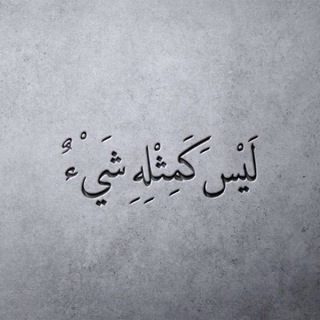 لَيْسَ كَمِثْلِهِ شَيْءٌ